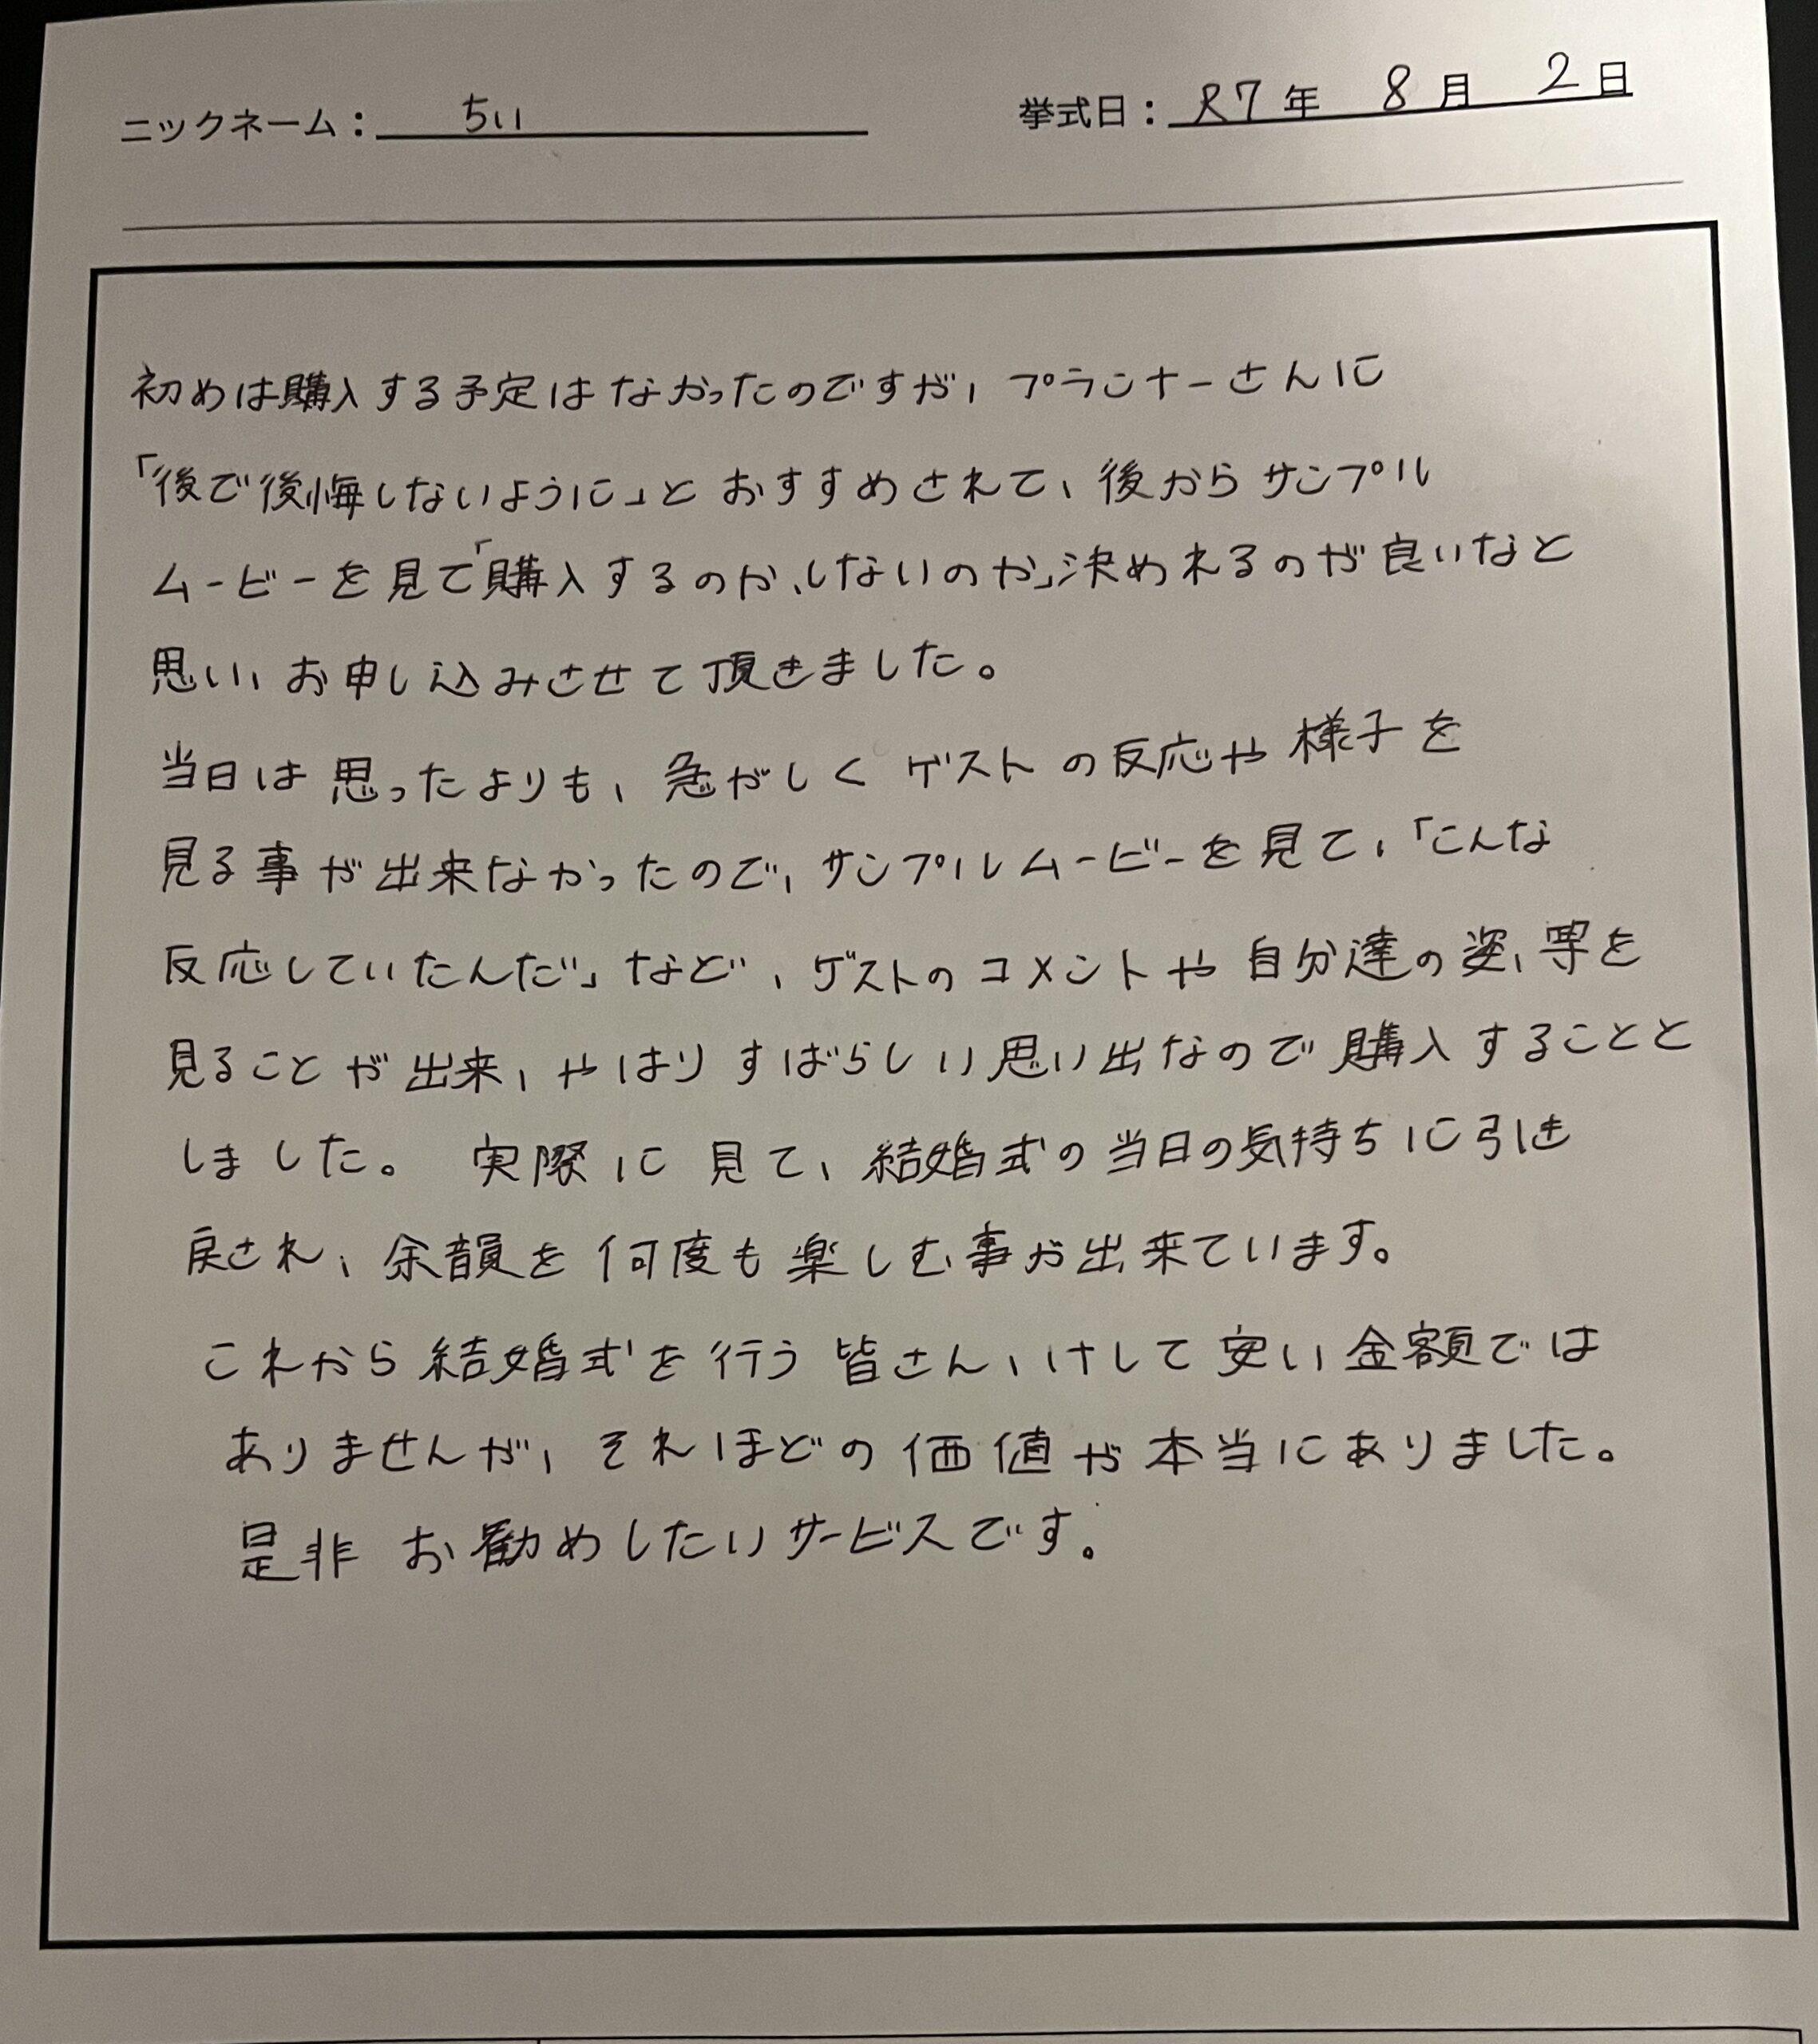 ニックネーム：ちい 挙式日：R7年 8月 2日
初めは購入する予定はなかったのですが、プランナーさんに
「後で後悔しないように」とおすすめされて、後からサンプル
ムービーを見て「購入するのか、しないのか」決めれるのが良いなと
思い、お申し込みさせて頂きました。
当日は思ったよりも、急がしくゲストの反応や様子を
見る事が出来なかったので、サンプルムービーを見て、「こんな
反応していたんだ」など、ゲストのコメントや自分達の姿、等を
見ることが出来、やはりすばらしい思い出なので購入することと
しました。 実際に見て、結婚式の当日の気持ちに引き
戻され、余韻を何度も楽しむ事が出来ています。
これから結婚式を行う皆さん、けして安い金額では
ありませんが、それほどの価値が本当にありました。
是非お勧めしたいサービスです。